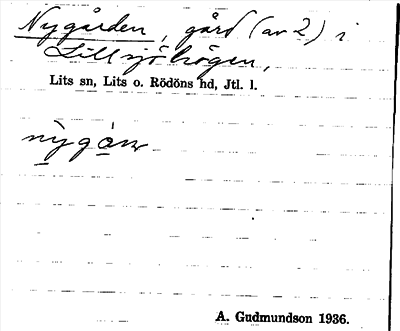 Nygården, gård (av 2) i
Lillsjöhögen,
Lits sn, Lits o. Rödöns hd, Jtl. l.
A. Gudmundson 1936.